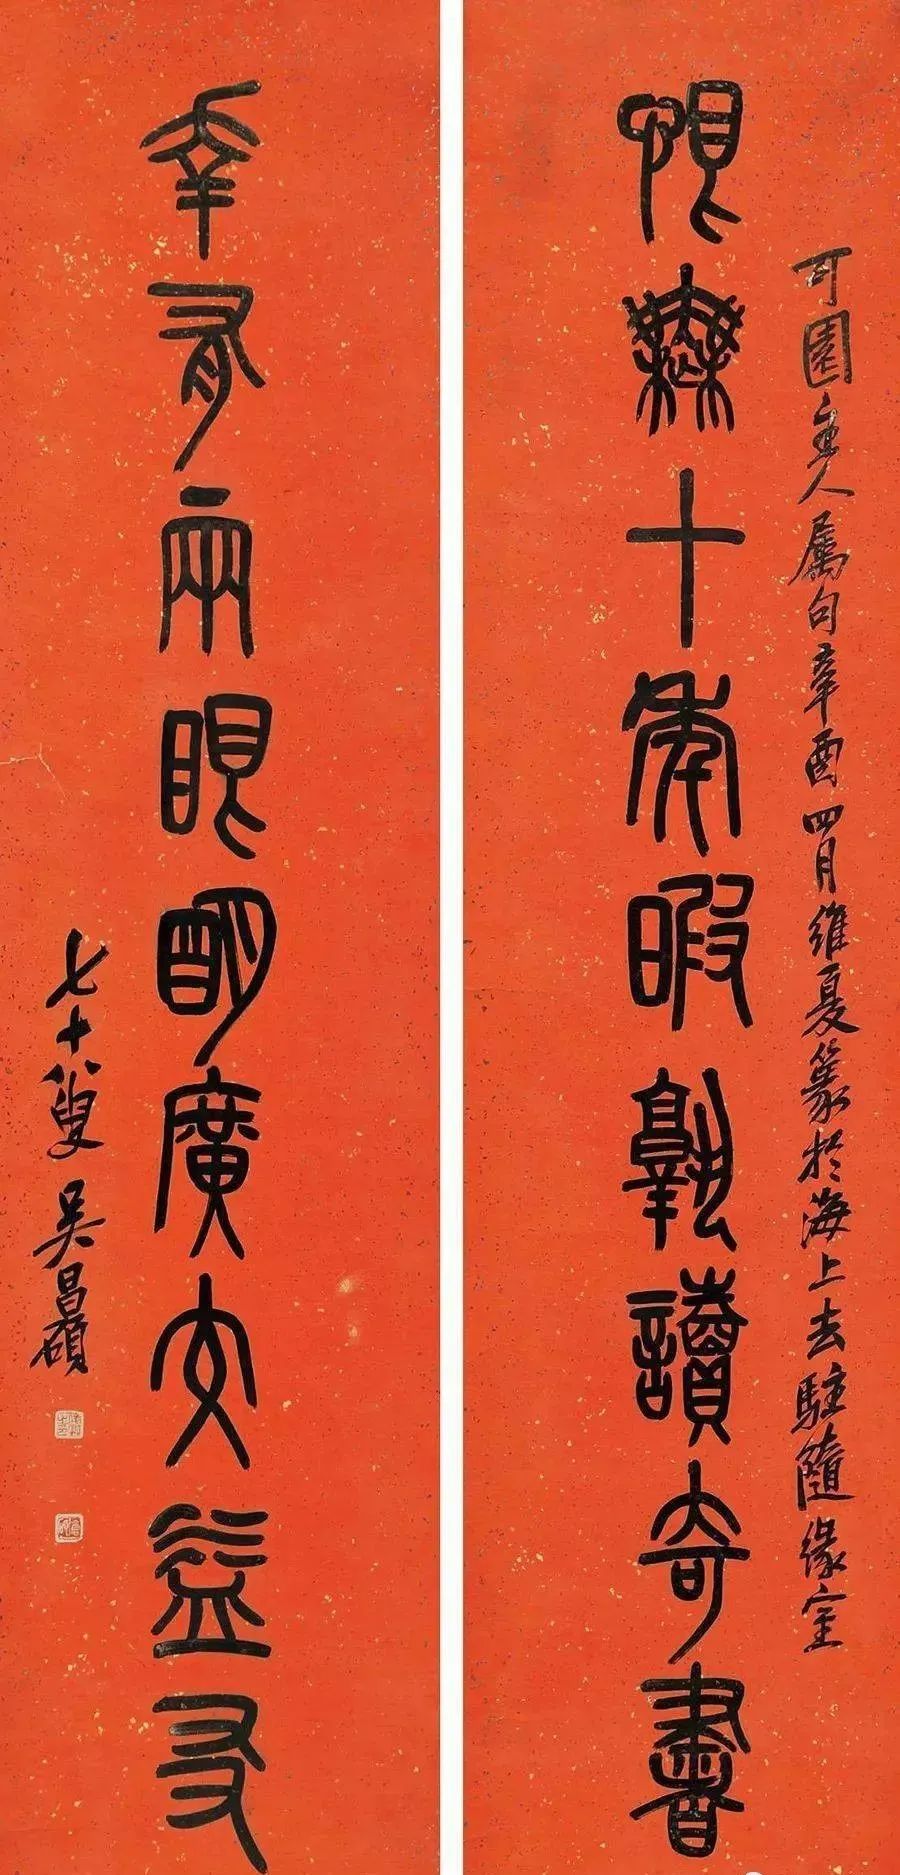 可園主人属句辛酉四月維夏篆於海上去駐隨緣室
恨無十年暇孰讀奇書
幸有兩眼明廣交益友
七十八叟吳昌碩